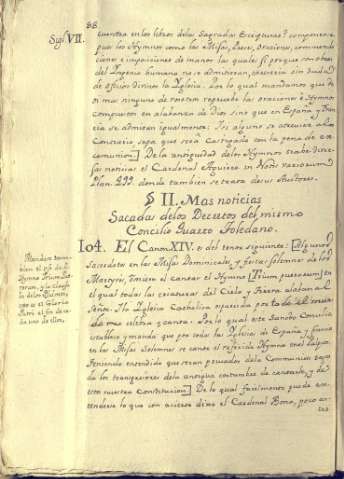 88.
Sigl. VII.
cuentra en los libros delas Sagradas Escrituras? componense
pues los Hymnos como las Misas, Preces, Oraciones, comendacio-
nes e imposiciones de manos las quales si porque son obras
del Ingenio humano no se admitieran, careceria sin duda
de oficios divinos la Iglesia. Por lo qual mandamos que de
oi mas ninguno de vosotros repruebe las oraciones e Hymnos
compuestos en alabanza de Dios sino que en España y Fran-
cia se admitan igualmente: Si alguno se atreviese a lo
Contrario sepa que sera castigado con la pena de ex-
comunion.] De la antiguedad de los Hymnos trahe diver-
sas noticias el Cardenal Aguirre in Notis
Num. 299. donde tambien se trata de sus Auctores.
§ II. Mas noticias
Sacadas delos Decretos del mismo
Concilio Quarto Toledano.
104. El Canon XIV. es del tenor siguiente: [Algunos
Sacerdotes en las Misas Dominicales, y fiestas solemnes de los
Martyres, omiten el cantar el Hymno [Trium puerorum] en
el qual todas las criaturas del Cielo y Tierra alaban al
Señor. Y la Iglesia Catholica esparcida por todo el mun-
do mas celebra y canta. Por lo qual este Santo Concilio
establece y manda que por todas las Iglesias de España y Francia
en las Misas Solemnes se cante el referido Hymno en el Pulpito.
Teniendo entendido que seran privados dela Communion to-
dos los transgresores dela antigua costumbre de cantarle, y de
esta nuestra Constitucion.] De lo qual facilmente puede en-
tenderse lo que con acierto dixo el Cardenal Bona, pero
Mandase tam-
bien el
Hymno Trium Pue-
rorum, y la
delos Hymnos
con el Gloria
Patri al fin de ca-
da uno de ellos.